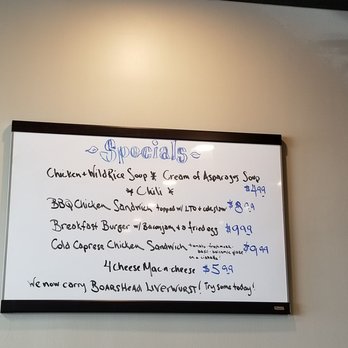 Specials
Chicken + Wild Rice Soup * Cream of Asparagus Soup
* Chili * $4.99
BBQ Chicken Sandwich topped w/ LTO + coleslaw $8.99
Breakfast Burger w/ Baconjam + a fried egg $9.99
Cold Caprese Chicken Sandwich tomato fresh mozz $9.99
basil balsamic glaze
on a ciabatta!
4 Cheese Mac n cheese $5.99
We now carry BOARSHEAD LIVERWURST! Try some today!